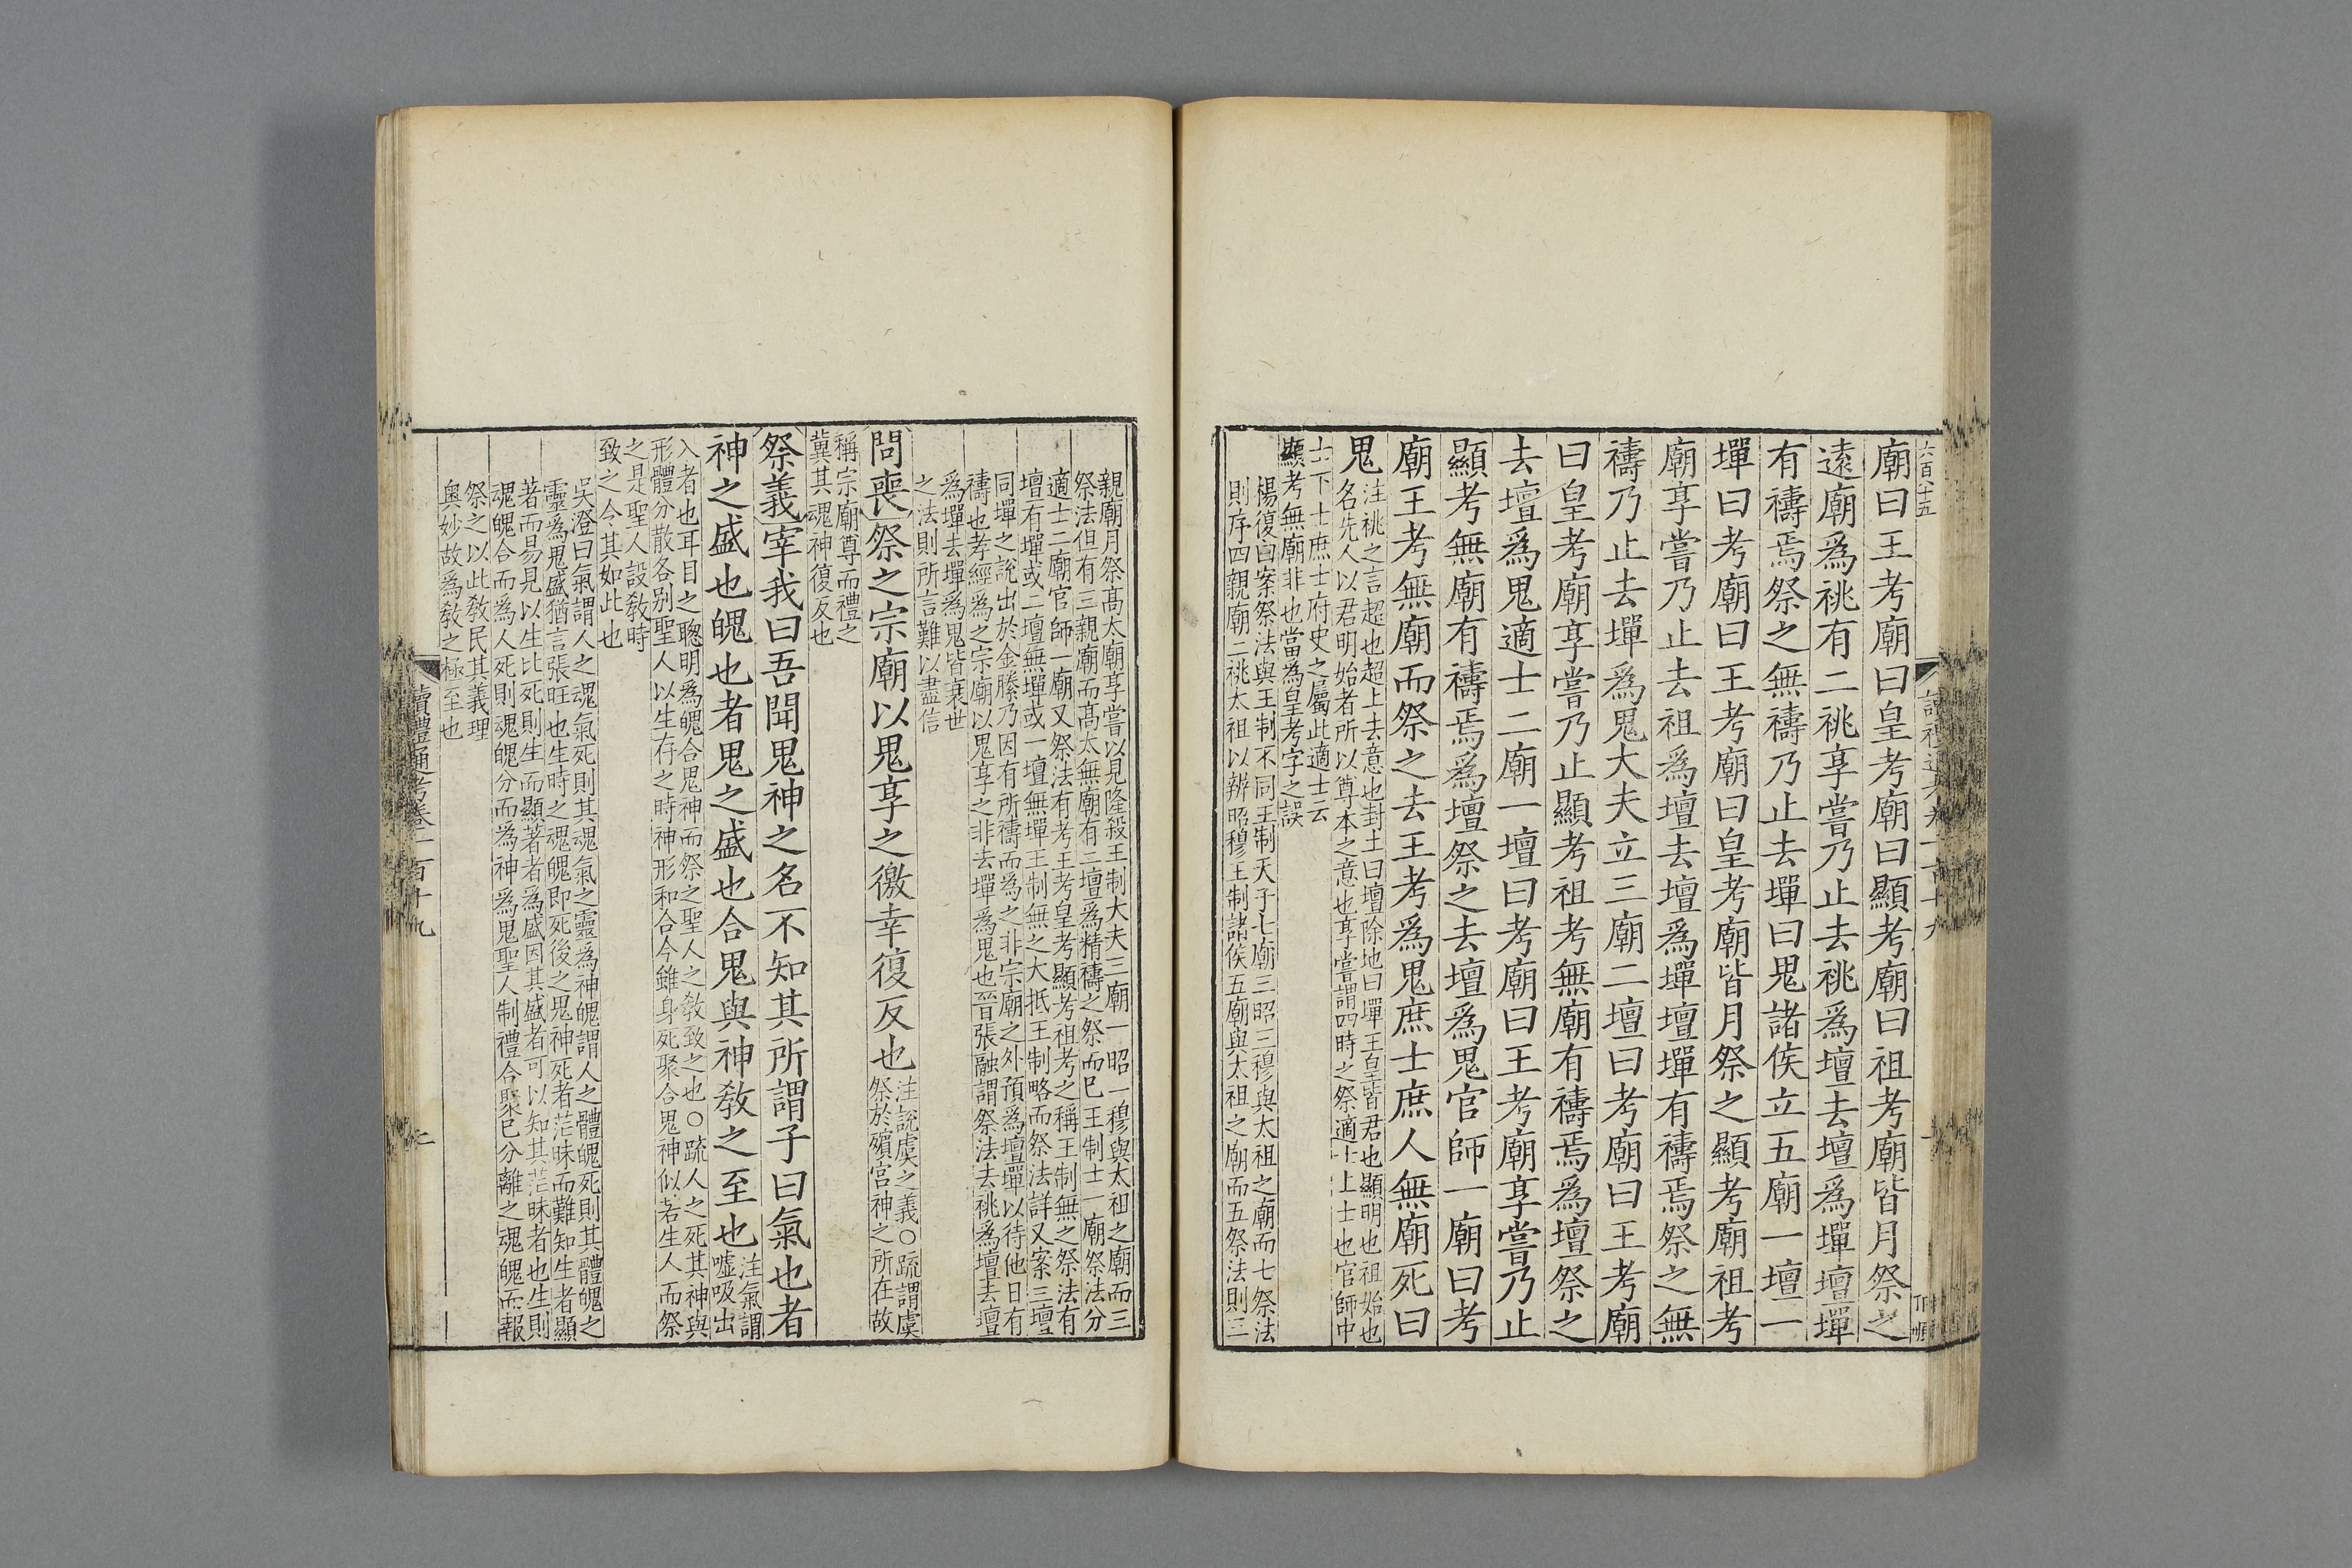 六百八十五
廟曰王考廟曰皇考廟曰顯考廟曰祖考廟皆月祭之
遠廟爲祧有二祧享嘗乃止去祧爲壇去壇爲墠壇墠
有禱焉祭之無禱乃止去墠曰鬼諸侯立五廟一壇一
墠曰考廟曰王考廟曰皇考廟皆月祭之顯考廟祖考
廟享嘗乃止去祖爲壇去壇爲墠壇墠有禱焉祭之無
禱乃止去墠爲鬼大夫立三廟二壇曰考廟曰王考廟
曰皇考廟享嘗乃止顯考祖考無廟有禱焉爲壇祭之
去壇爲鬼適士二廟一壇曰考廟曰王考廟享嘗乃止
顯考無廟有禱焉爲壇祭之去壇爲鬼官師一廟曰考
廟王考無廟而祭之去王考爲鬼庶士庶人無廟死曰
鬼
注祧之言超也超上去意也封土曰壇除地曰墠王皇皆君也顯明也祖始也
名先人以君明始者所以尊本之意也享嘗謂四時之祭適士上士也官師中
士下士庶士府史之屬此適士云
顯考無廟非也當為皇考字之誤
楊復曰案祭法與王制不同王制天子七廟三昭三穆與太祖之廟而七祭法
則序四親廟二祧太祖以辨昭穆王制諸侯五廟與太祖之廟而五祭法則三
親廟月祭髙太廟享嘗以見隆殺王制大夫三廟一昭一穆與太祖之廟而三
祭法但有三親廟而髙太無廟有二壇爲精禱之祭而已王制士一廟祭法分
適士二廟官師一廟又祭法有考王考皇考顯考祖考之稱王制無之祭法有
壇有墠或二壇無墠或一壇無墠王制無之大抵王制略而祭法詳又案三壇
同墠之說出於金縢乃因有所禱而為之非宗廟之外預爲壇墠以待他日有
禱也孝經爲之宗廟以鬼享之非去墠爲鬼也晉張融謂祭法去祧爲壇去壇
爲墠去墠爲鬼皆衰世
之法則所言難以盡信
問喪祭之宗廟以鬼享之徼幸復反也
注說虞之義○疏謂虞
祭於殯宮神之所在故
稱宗廟尊而禮之
冀其魂神復反也
祭義宰我曰吾聞鬼神之名不知其所謂子曰氣也者
神之盛也魄也者鬼之盛也合鬼與神敎之至也
注氣謂
噓吸出
入者也耳目之聰明爲魄合鬼神而祭之聖人之敎致之也○疏人之死其神與
形體分散各别聖人以生存之時神形和合今雖身死聚合鬼神似若生人而祭
之是聖人設敎時
致之令其如此也
吳澄曰氣謂人之魂氣死則其魂氣之靈爲神魄謂人之體魄死則其體魄之
靈爲鬼盛猶言張旺也生時之魂魄即死後之鬼神死者茫昧而難知生者顯
著而易見以生比死則生而顯著者爲盛因其盛者可以知其茫昧者也生則
魂魄合而爲人死則魂魄分而爲神爲鬼聖人制禮合聚已分離之魂魄而報
祭之以此敎民其義理
奥妙故爲敎之極至也
讀禮通考卷一百十九